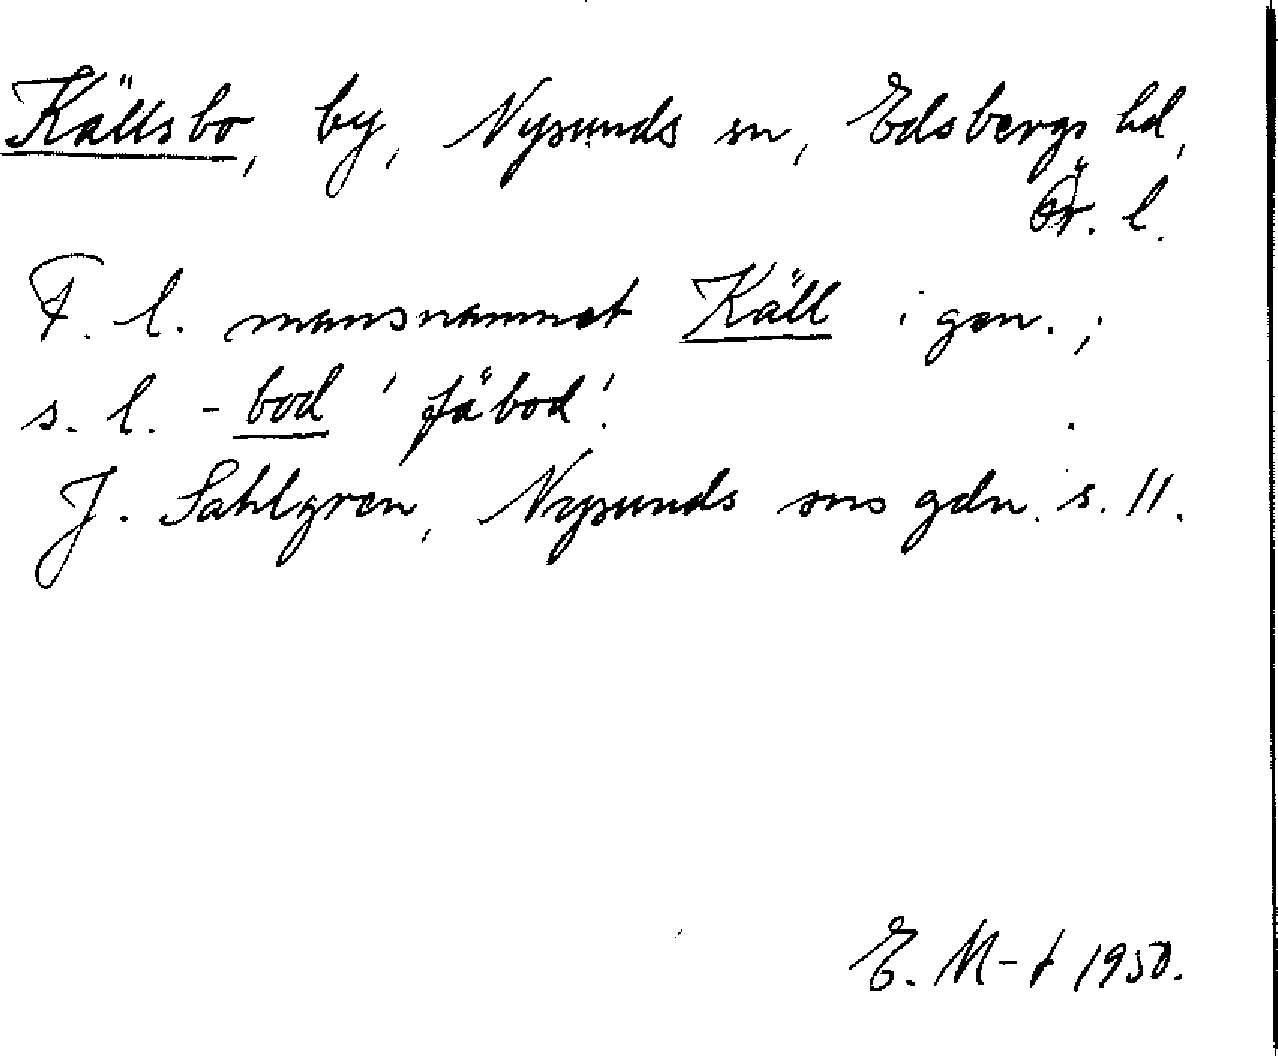 Källsbo, by, Nysunds sn, Edsbergs hd,
Ör. l.
F. l. mansnamnet Käll i gen.;
s. l. -bod 'fäbod'.
J. Sahlgren, Nysunds sns gdn. s. 11.
E. M-t 1950.